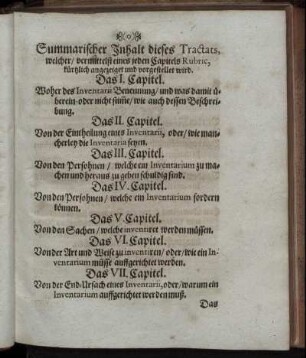 Summarischer Inhalt dieses Tractats,
welcher / vermittelst eines jeden Capitels Rubric,
kürtzlich angezeiget und vorgestellet wird.
Das I. Capitel.
Woher des Inventarii Benennung / und was damit ü-
berein- oder nicht stimme / wie auch dessen Beschrei-
bung.
Das II. Capitel.
Von der Eintheilung eines Inventarii, oder / wie man-
cherley die Inventaria seyen.
Das III. Capitel.
Von den Persohnen / welche ein Inventarium zu ma-
chen und heraus zu geben schuldig sind.
Das IV. Capitel.
Von den Persohnen / welche ein Inventarium fordern
können.
Das V. Capitel.
Von den Sachen / welche inventiret werden müssen.
Das VI. Capitel.
Von der Art und Weise zu inventiren / oder / wie ein In-
ventarium müsse auffgerichtet werden.
Das VII. Capitel.
Von der End-Ursach eines Inventarii, oder / warum ein
Inventarium auffgerichtet werden muß.
Das